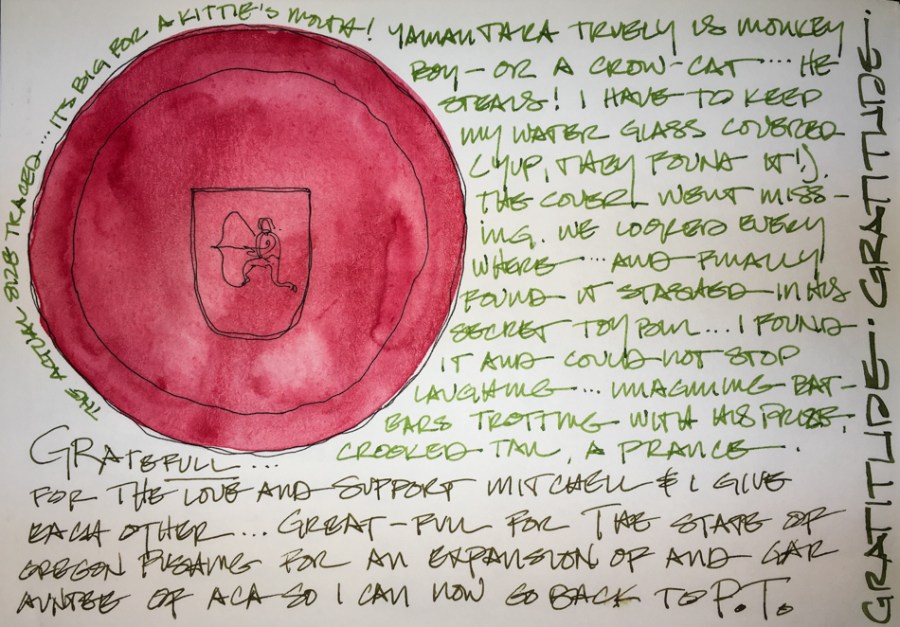 THE ACTUAL SIZE TRACED... IT'S BIG FOR A KITTIE'S MOUTH!
YAMANTAKA TRUELY IS MONKEY
BOY - OR A CROW-CAT... HE
STEALS! I HAVE TO KEEP
MY WATER GLASS COVERED
(YUP, THEY FOUND IT!).
THE COVER WENT MISS-
ING. WE LOOKED EVERY
WHERE... AND FINALLY
FOUND IT STASHED IN HIS
SECRET TOY BOWL... I FOUND
IT AND COULD NOT STOP
LAUGHING... IMAGINING BAT-
EARS TROTTING WITH HIS PRIZE,
CROOKED TAIL, A PRANCE.
GRATEFULL...
FOR THE LOVE AND SUPPORT MITCHELL & I GIVE
EACH OTHER... GREAT-FUL FOR THE STATE OF
OREGON PUSHING FOR AN EXPANSION OF AND GAR
AUNTEE OF ACA SO I CAN NOW GO BACK TO P.T.
GRATITUDE. GRATITUDE.